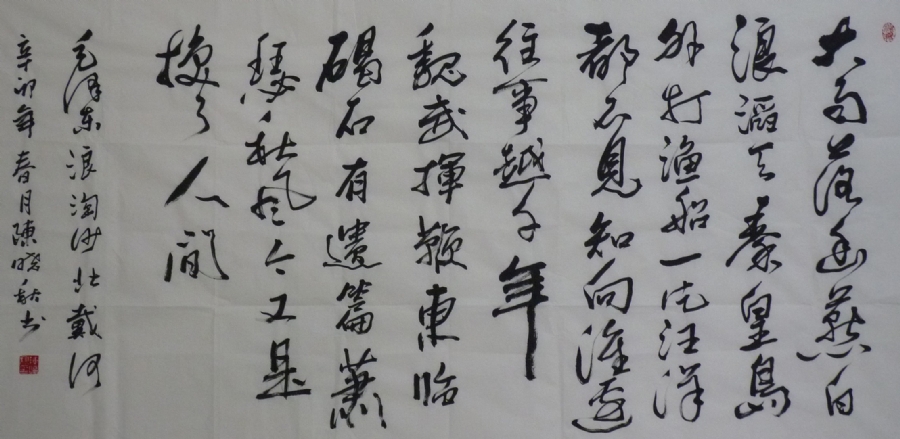 大雨落幽燕白
浪滔天秦皇島
外打漁船一片汪洋
都不見知向誰邊
往事越千年
魏武揮鞭東臨
碣石有遺篇蕭
瑟秋風今又是
換了人間
毛澤東浪淘沙北戴河
辛卯年春月陳秋书